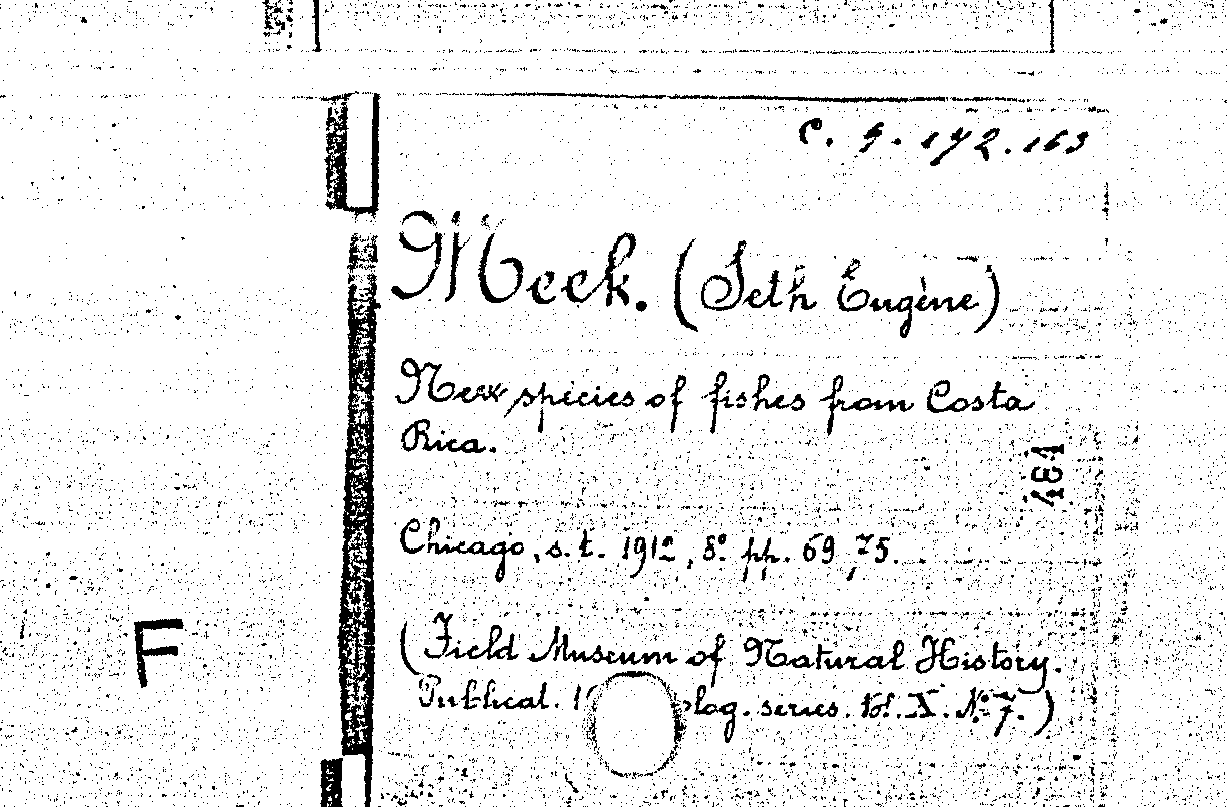 C. 9. 172. 163
Meek. (Seth Eugène)
New species of fishes from Costa
Rica.
484
Chicago, s.t. 1912, 8° pp. 69, 75.
F
(Field Museum of Natural History.
Publicat. series. Vol. X. N° 7.)